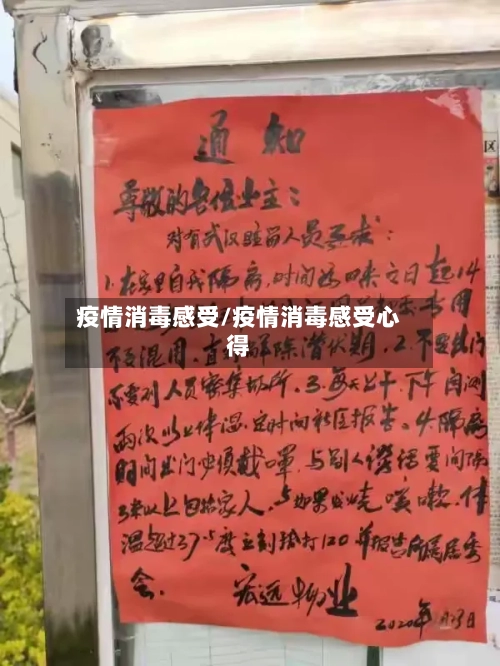 通知
尊敬的各位业主：
对有武汉驻留人员要求：
1.在家里自我隔离，时间为回来之日起14
疫情消毒感受/疫情消毒感受心
得
不要混用，直解除潜伏期，2.不要出门
不要到人员密集场所。3.每天上午、下午自测
两次以上体温，定时向社区报告。4.隔离
时间出门必须戴口罩，与别人说话要间隔
3米以上包括家人，5如果发烧咳嗽，体
温超过37.5度立刻拨打120并报告所属居委
会。 宏远物业
2020年1月23日
区